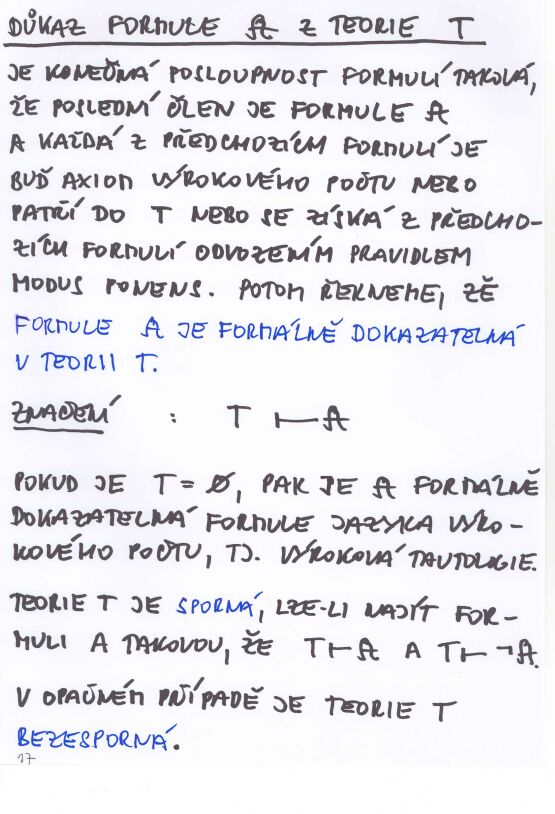 DŮKAZ FORMULE A Z TEORIE T
JE KONEČNÁ POSLOUPNOST FORMULÍ TAKOVÁ,
ŽE POSLEDNÍ ČLEN JE FORMULE A
A KAŽDÁ Z PŘEDCHOZÍCH FORMULÍ JE
BUĎ AXIOM VÝROKOVÉHO POČTU NEBO
PATŘÍ DO T NEBO SE ZÍSKÁ Z PŘEDCHO-
ZÍCH FORMULÍ ODVOZENÍM PRAVIDLEM
MODUS PONENS. POTOM ŘEKNEME, ŽE
FORMULE A JE FORMÁLNĚ DOKAZATELNÁ
V TEORII T.
ZNAČENÍ : T ⊢ A
POKUD JE T = Ø, PAK JE A FORMÁLNĚ
DOKAZATELNÁ FORMULE JAZYKA VÝRO-
KOVÉHO POČTU, TJ. VÝROKOVÁ TAUTOLOGIE.
TEORIE T JE SPORNÁ, LZE-LI NAJÍT FOR-
MULI A TAKOVOU, ŽE T ⊢ A A T ⊢ ¬A.
V OPAČNÉM PŘÍPADĚ JE TEORIE T
BEZESPORNÁ.
17